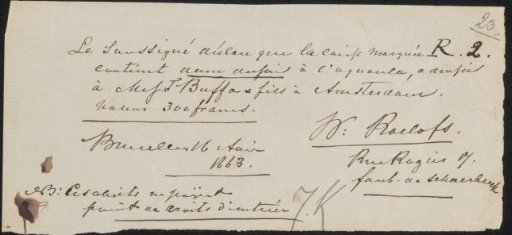 23
Le Soussigné déclare que la caisse marquée R. 2.
contient deux dessins à l'aquarelle, adressés
à Mess. F Buffa & fils à Amsterdam.
valeur. 300 francs.
W: Roelofs.
Bruxelles 16
1863.
Rue Rogier
faub. de Schaerbeek
NB: Ces objets ne payent
point de droits d'entrée